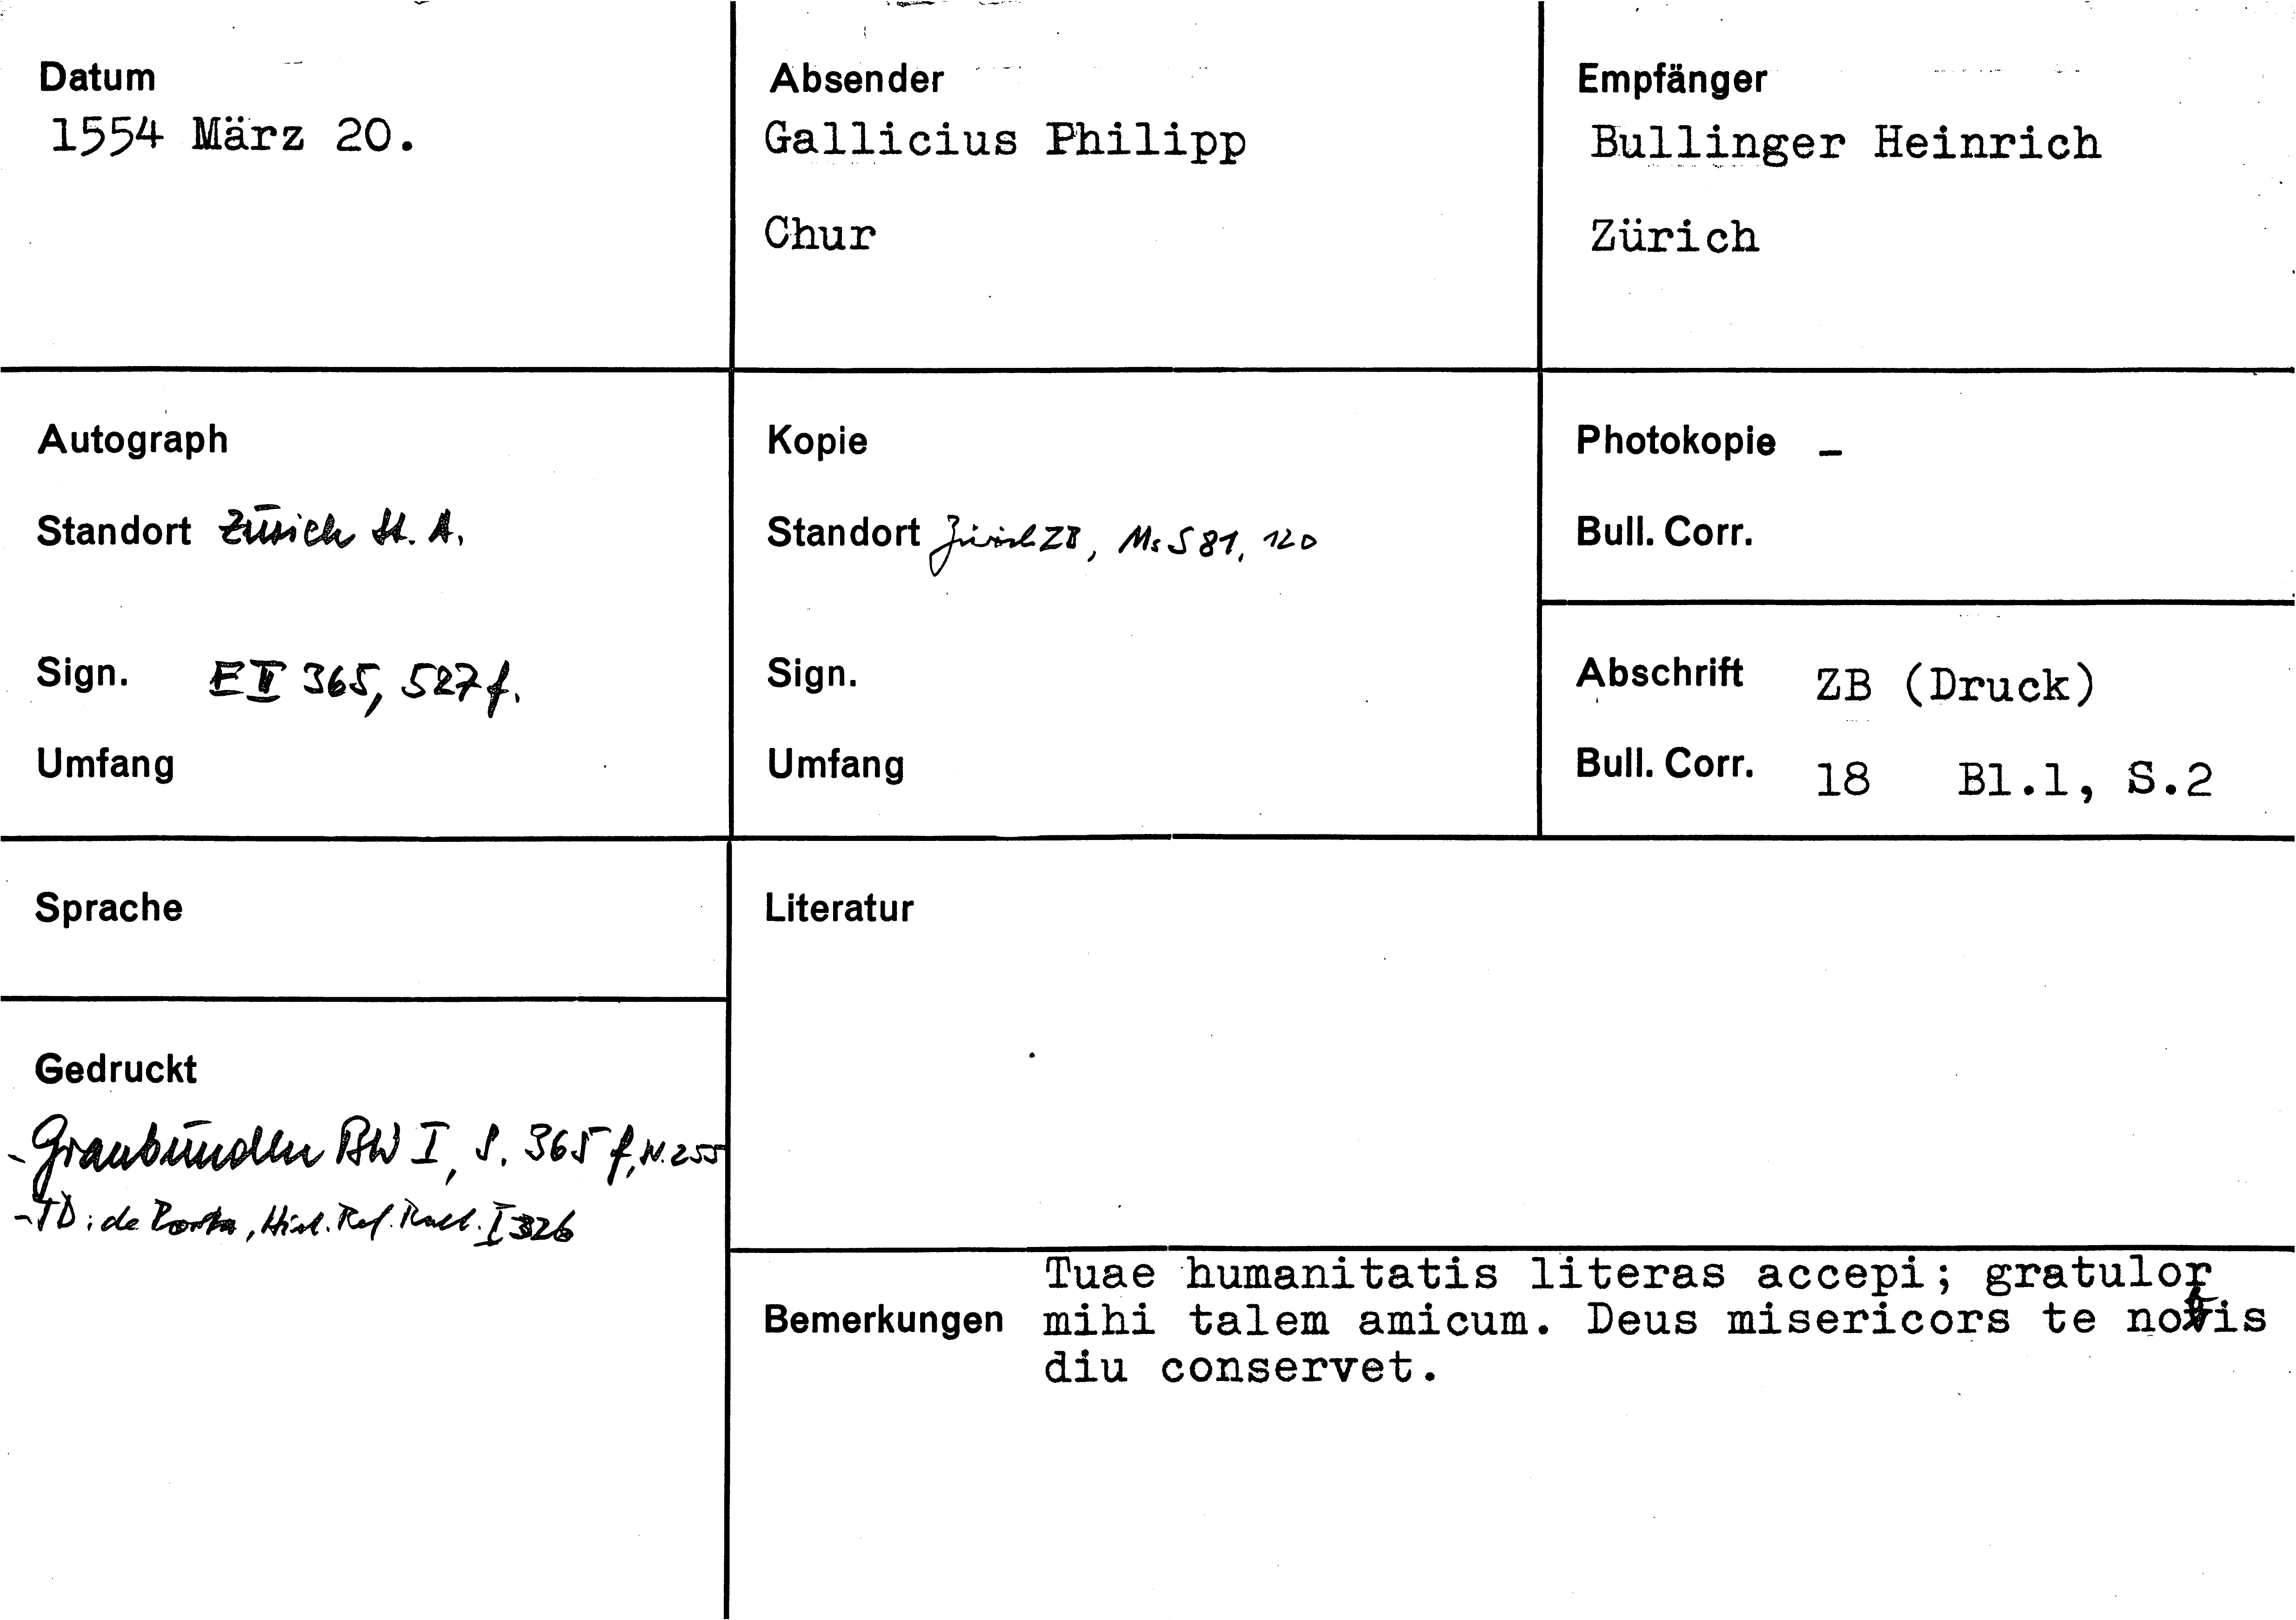 Datum
1554 März 20.
Absender
Gallicius Philipp
Chur
Empfänger
Bullinger Heinrich
Zürich
Autograph
Standort Zürich St. A.
Sign. E II 365, 527 f.
Umfang
Kopie
Standort Zürich ZB, Ms S 81, 120
Sign.
Umfang
Photokopie –
Bull. Corr.
Abschrift ZB (Druck)
Bull. Corr. 18 Bl.1, S.2
Sprache
Gedruckt
- Graubünden BW I, S. 365 f, N. 255
- TD: de Porta, Hist. Ref. Raet. I 326
Literatur
Bemerkungen
Tuae humanitatis literas accepi; gratulor
mihi talem amicum. Deus misericors te nobis
diu conservet.